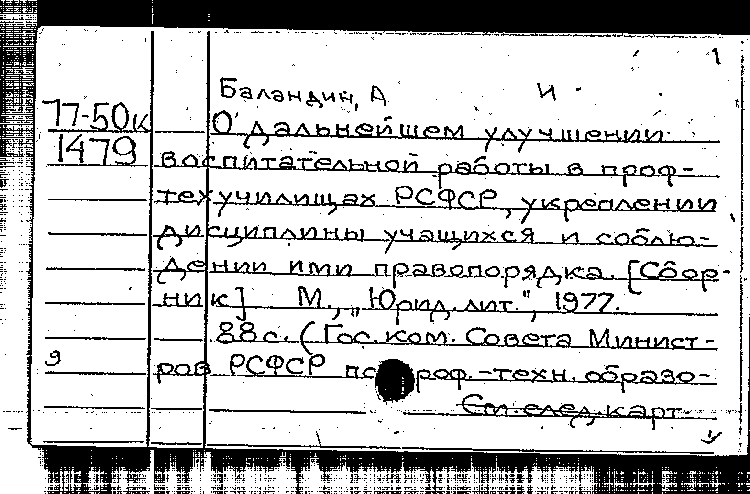 1
Баландин, А И
77-50к О дальнейшем улучшении
1479 воспитательной работы в проф-
техучилищах РСФСР, укреплении
дисциплины учащихся и соблю-
дении ими правопорядка. [Сбор-
ник] М., „Юрид. лит.", 1977.
88с. (Гос. ком. Совета Минист-
9 ров РСФСР по проф.-техн. образо-
См. след. карт.